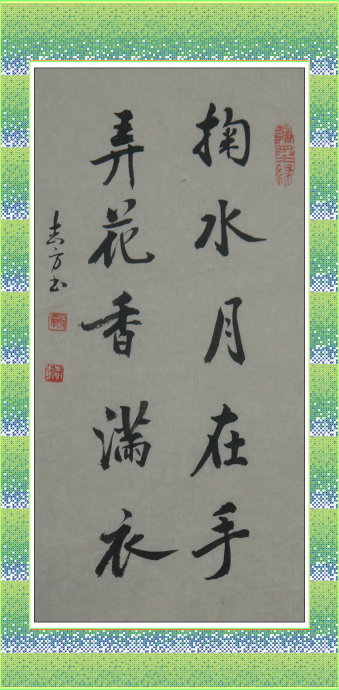 掬水月在手
弄花香满衣
志方书